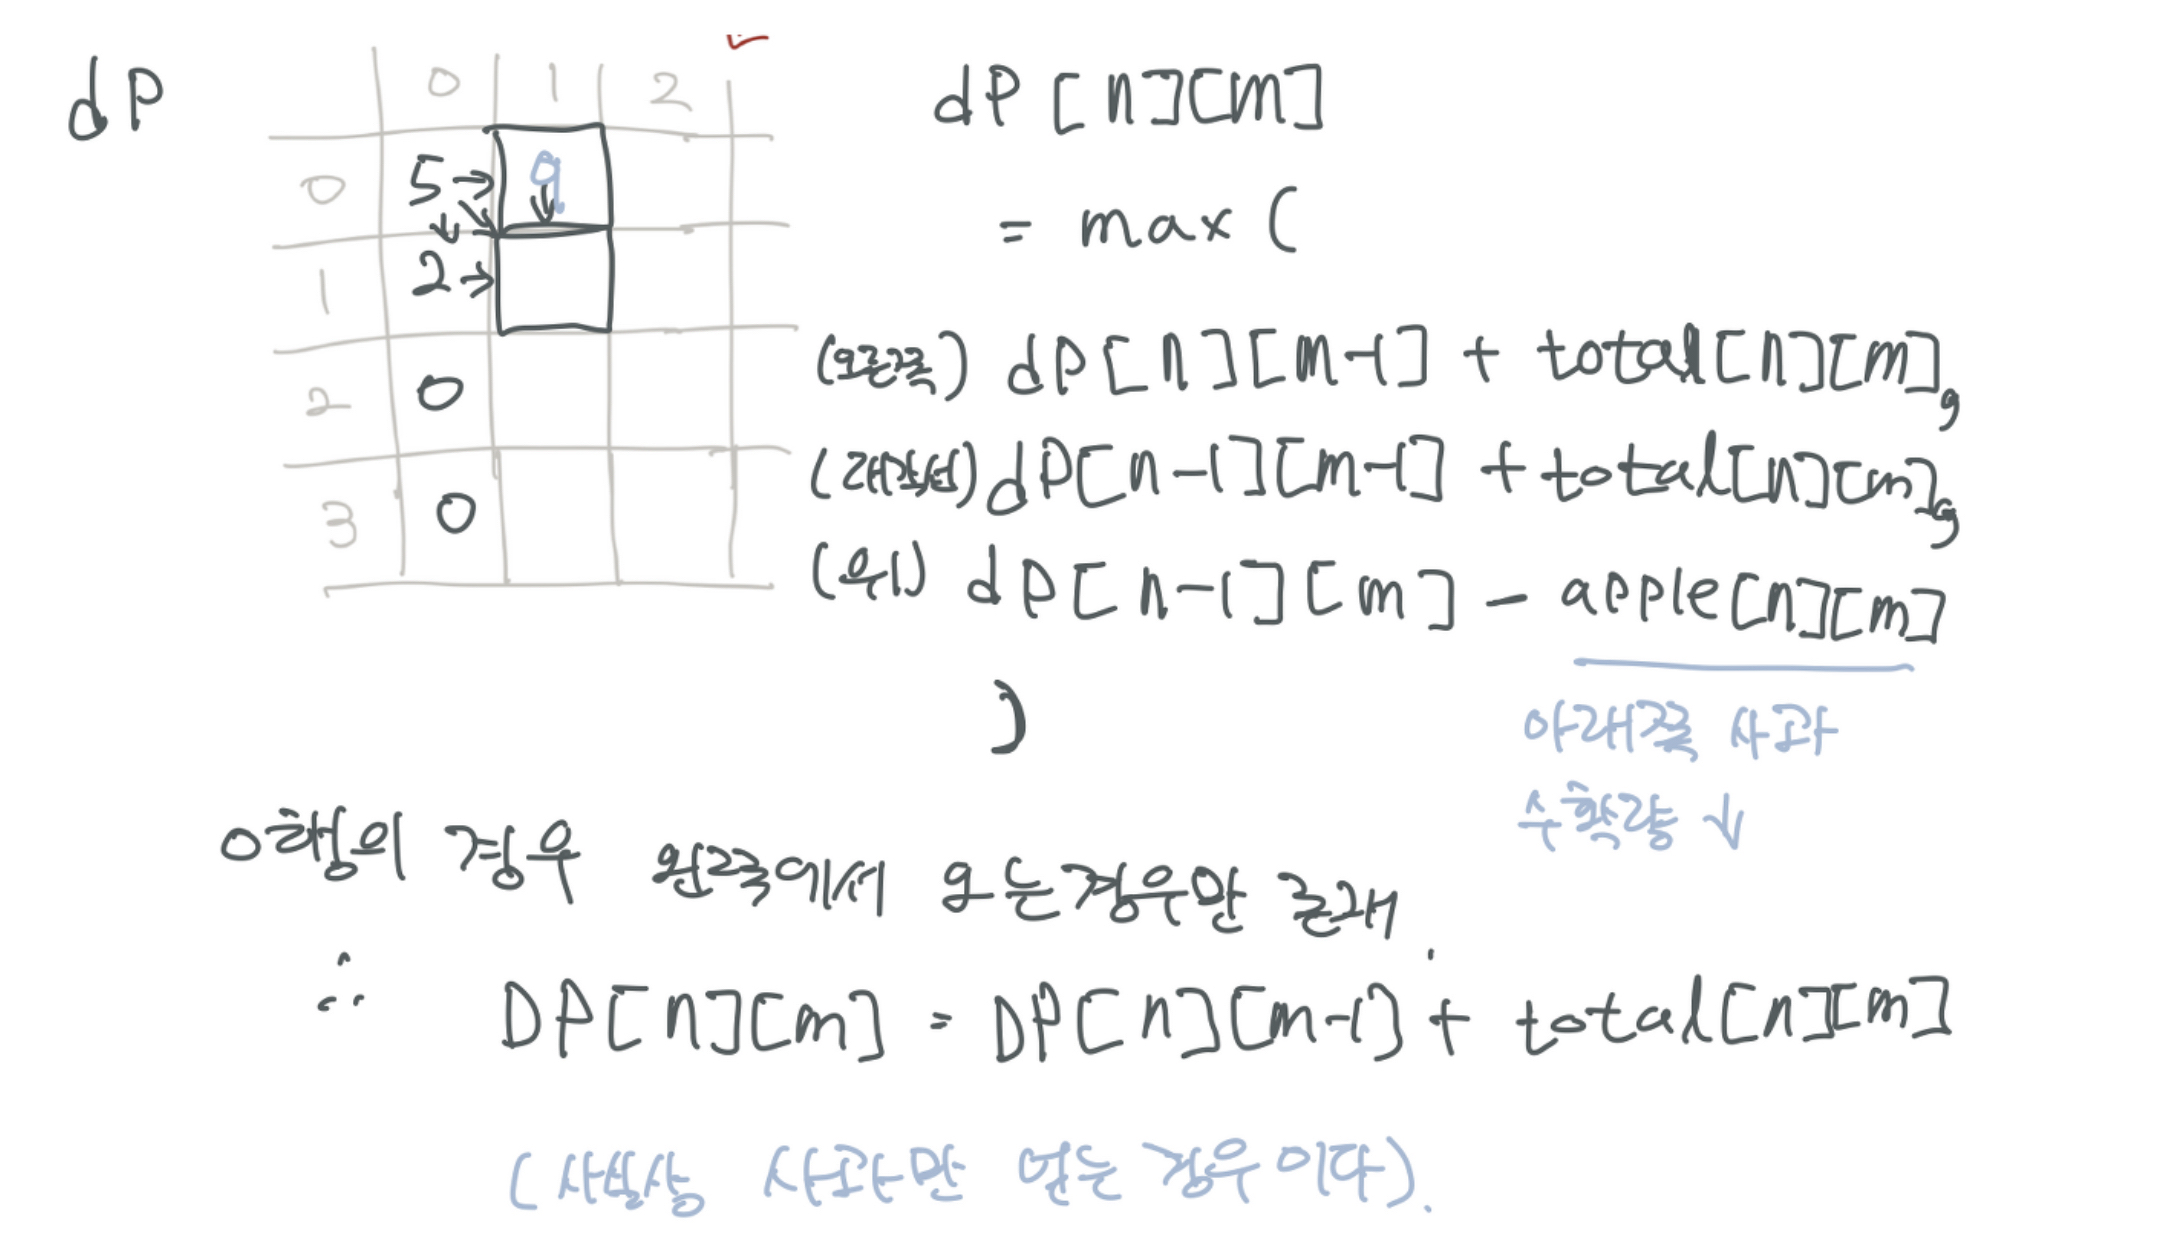 dP
0 1 2
0 5→ 9
1 2→
2 0
3 0
dP[n][m]
= max(
(오른쪽) dP[n][m-1] + total[n][m],
(대각선) dP[n-1][m-1] + total[n][m],
(위) dP[n-1][m] - apple[n][m]
아래쪽 사과
수확량 ↓
)
0행의 경우 왼쪽에서 오는경우만 존재.
∴ DP[n][m] = DP[n][m-1] + total[n][m]
(사실상 사과만 얻는 경우이다).